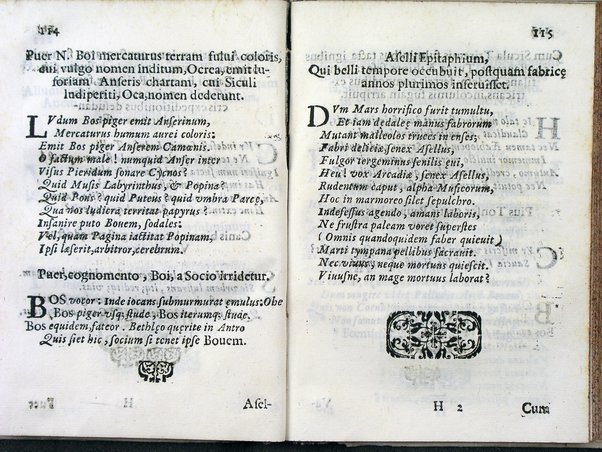 114
Puer N. Boi mercaturus terram fului coloris,
cui vulgo nomen inditum, Ocrea, emit lu-
soriam Anseris chartam, cui Siculi
ludiperiti, Oca, nomen dederunt.
LVdum Bos piger emit Anserinum,
Mercaturus humum aurei coloris:
Emit Bos piger Anserem Camœnis.
O factum male! numquid Anser inter
Visus Pieridum sonare Cycnos?
Quid Musis Labyrinthus, & Popina?
Quid Pons? quid Puteus? quid vmbra Parcę,
Qua nos ludicra territat papyrus?
Insanire puto Bouem, sodales:
Vel, quam Pagina iactitat Popinam,
Ipsi læserit, arbitror, cerebrum.
Puer, cognomento, Boi, a Socio irridetur.
BOS vocor: Inde iocans submurmurat ęmulus: Ohe
Bos piger vsq; stude, Bos iterumq; stude.
Bos equidem, fateor. Bethleo quęrite in Antro
Quis siet hic, socium si tenet ipse Bouem.
Asel-
115
Aselli Epitaphium,
Qui belli tempore occubuit, postquam fabricę
annos plurimos inseruisset.
DVm Mars horrifico furit tumultu,
Et iam dedalæ manus fabrorum
Mutant malleolos truces in enses;
Fabri delicia, senex Asellus,
Fulgor tergeminus senilis æui,
Heu! vox Arcadiæ, senex Asellus,
Rudentum caput, alpha Musicorum,
Hoc in marmoreo silet sepulchro.
Indefessus agendo, amans laboris,
Ne frustra paleam voret superstes
( Omnis quandoquidem faber quieuit )
Marti tympana pellibus sacrauit.
Nec viuus, neque mortuus quiescit.
Viuusne, an mage mortuus laborat?
H 2
Cum